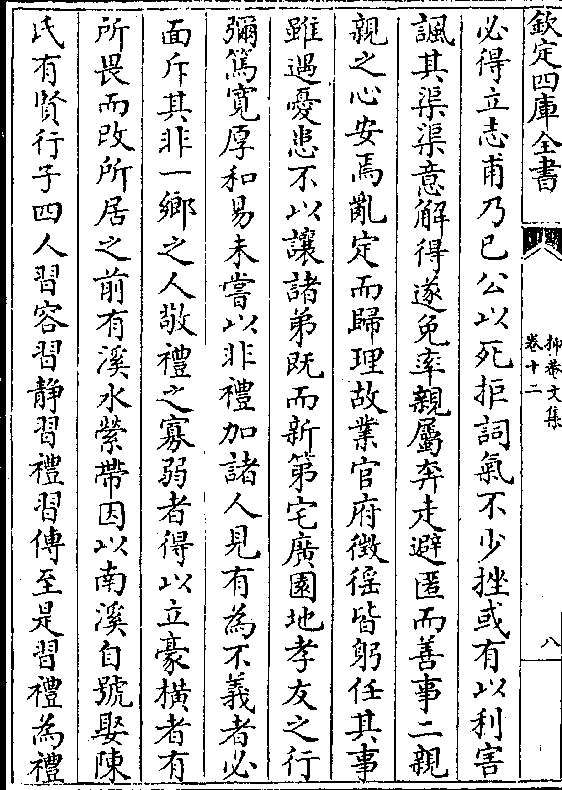 欽定四庫全書
抑菴文集
卷十二
八
必得立志甫乃已公以死拒詞氣不少挫或有以利害
諷其渠渠意解得遂免率親屬奔走避匿而善事二親
親之心安焉亂定而歸理故業官府徵徭皆躬任其事
雖遇憂患不以讓諸弟既而新第宅廣園地孝友之行
彌篤寛厚和易未嘗以非禮加諸人見有為不義者必
面斥其非一鄉之人敬禮之寡弱者得以立豪橫者有
所畏而改所居之前有溪水縈帶因以南溪自號娶陳
氏有賢行子四人習容習静習禮習傳至是習禮為禮